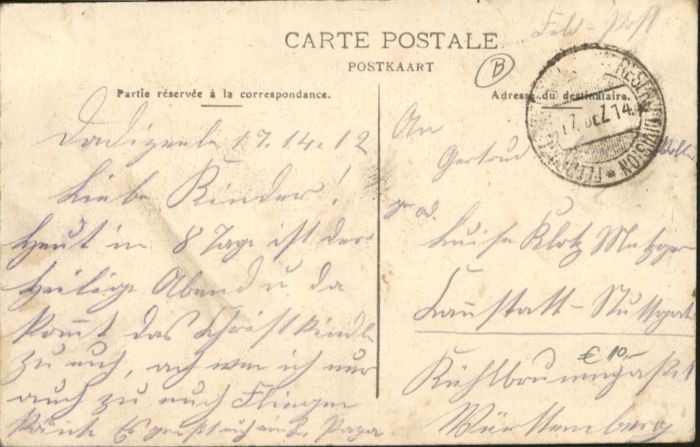 Feld-Post
CARTE POSTALE
POSTKAART
B
Partie réservée à la correspondance.
Adresse du destinataire.
17. DEZ 14
Dadizeele 17.14.12
Liebe Kinder!
Heut in 8 Tage ist der
Heilige Abend u da
kommt das Christkindle
zu euch, ach wen ich nur
auch zu euch Fliegen
könnte Es grüst euch Papa
An
Gertrud
od.
Luise Klotz Metzger
Cannstatt-Stuttgart
€ 10,-
Kühlbrunnengasse 1
Württemberg